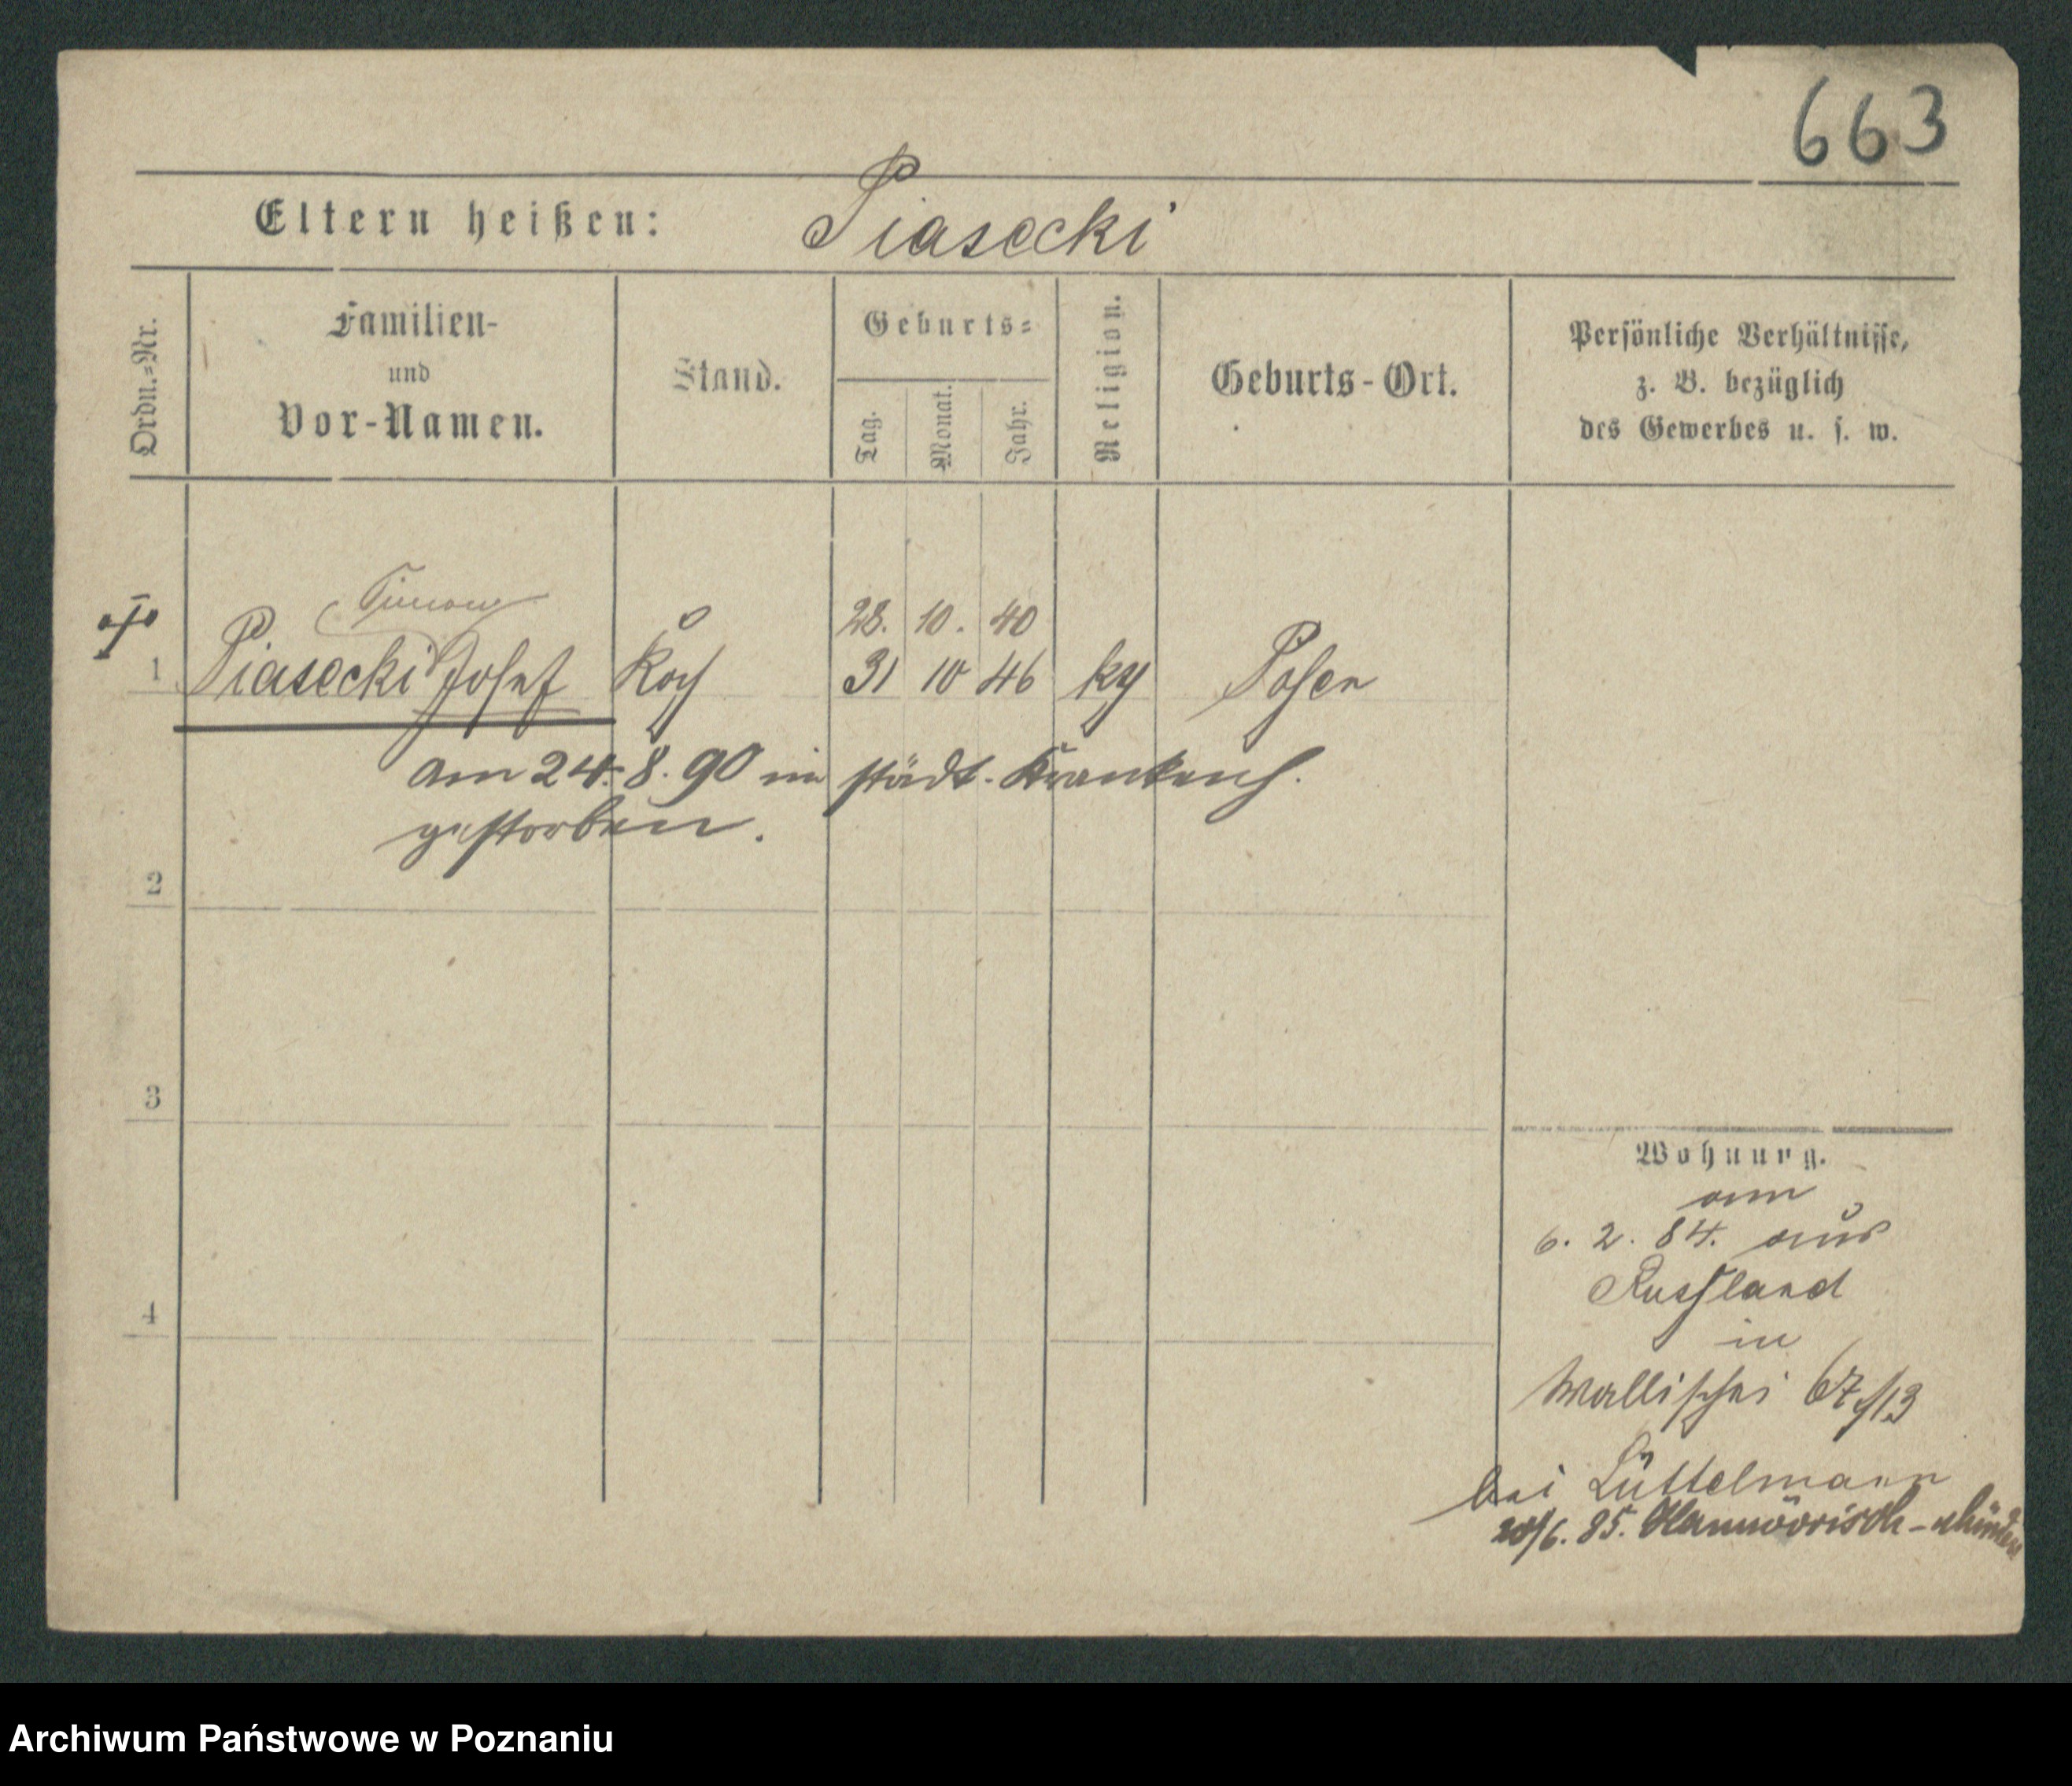 663
Eltern heißen: Piasecki
Ordn.=Nr.
Familien-
und
Vor-Namen.
Stand.
Geburts=
Tag.
Monat.
Jahr.
Religion.
Geburts-Ort.
Persönliche Verhältnisse,
z. B. bezüglich
des Gewerbes u. s. w.
28. 10. 40
1 Piasecki Josef Koch 31 10 46 Posen
am 24. 8. 90 im städt. Krankenh.
gestorben.
2
3
4
Wohnung.
am
6. 2. 84. aus
Russland
in
Wallischei 67/13
bei Lüttelmann
20/6. 85. Hannövrisch-Münden
Archiwum Państwowe w Poznaniu